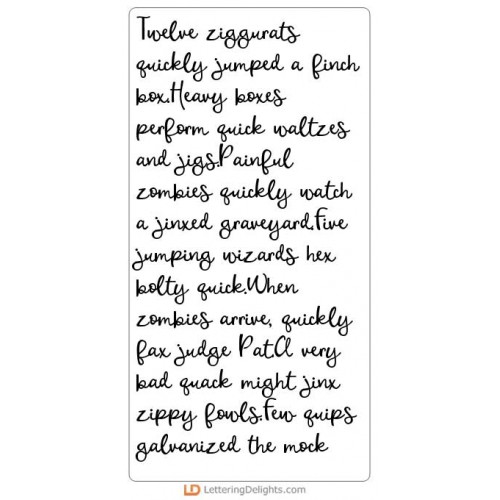 Twelve ziggurats
quickly jumped a finch
box.Heavy boxes
perform quick waltzes
and jigs.Painful
zombies quickly watch
a jinxed graveyard.Five
jumping wizards hex
bolty quick.When
zombies arrive, quickly
fax judge Pat.A very
bad quack might jinx
zippy fowls.Few quips
galvanized the mock
LD LetteringDelights.com